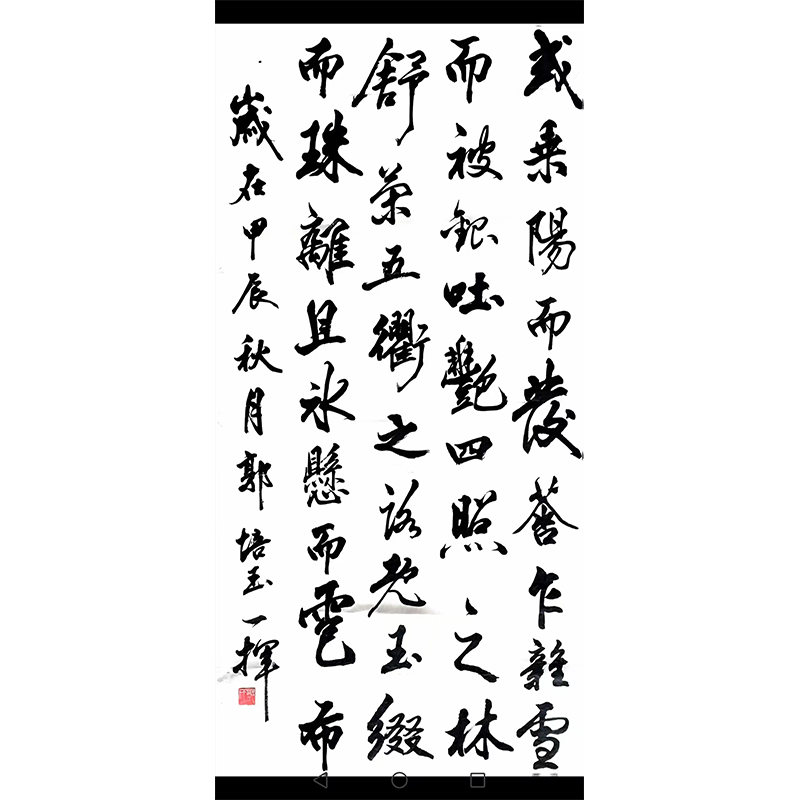 或乘陽而發乍雜雪
而被銀吐艷四照之林
舒榮五衢之路既玉綴
而珠離且氷懸而雹布
歲在甲辰秋月郭培玉一揮